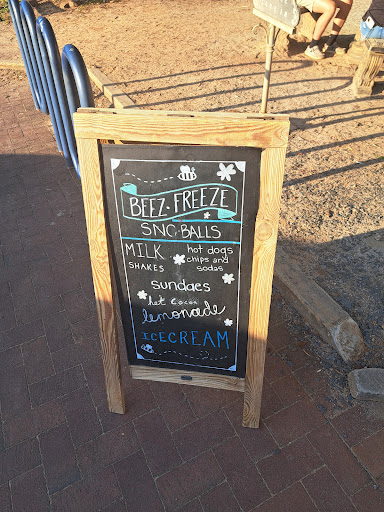 BEEZ·FREEZE
SNO·BALLS
MILK
SHAKES
hot dogs
chips and
sodas
sundaes
hot cocoa
lemonade
ICECREAM